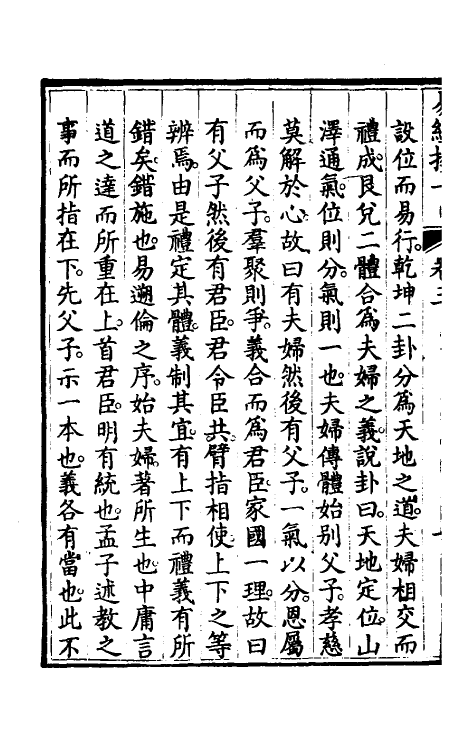 設位而易行。乾坤二卦分爲天地之道。夫婦相交而
禮成。艮兌二體合爲夫婦之義。說卦曰。天地定位。山
澤通氣。位則分。氣則一也。夫婦傳體始別父子。孝慈
莫解於心。故曰有夫婦然後有父子。一氣以分。恩屬
而爲父子。羣聚則爭。義合而爲君臣。家國一理。故曰
有父子然後有君臣。君令臣共。臂指相使。上下之等
辨焉。由是禮定其體。義制其宜。有上下而禮義有所
錯矣。錯施也。易遡倫之序。始夫婦。著所生也。中庸言
道之達而所重在上。首君臣。明有統也。孟子述教之
事而所指在下。先父子。示一本也。義各有當也。此不